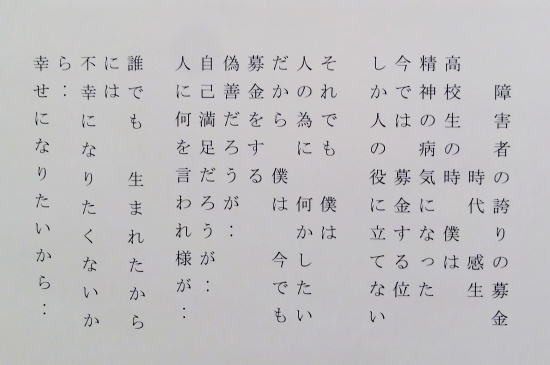 障害者の誇りの募金
時代 感生
高校生の時 僕は
精神の病気になった
今では 募金する位
しか人の役に立てない
それでも 僕は
人の為に 何かしたい
だから 僕は 今でも
募金をする
偽善だろうが…
自己満足だろうが…
人に何を言われ様が…
誰でも 生まれたから
には
不幸になりたくないか
ら…
幸せになりたいから…